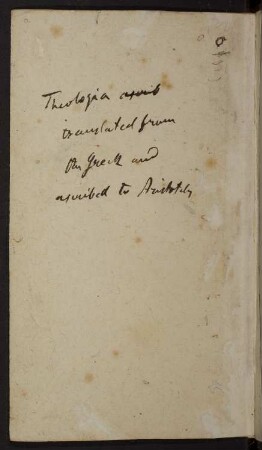 Theologia ascrib
translated from
the Greek and
ascribed to Aristotle